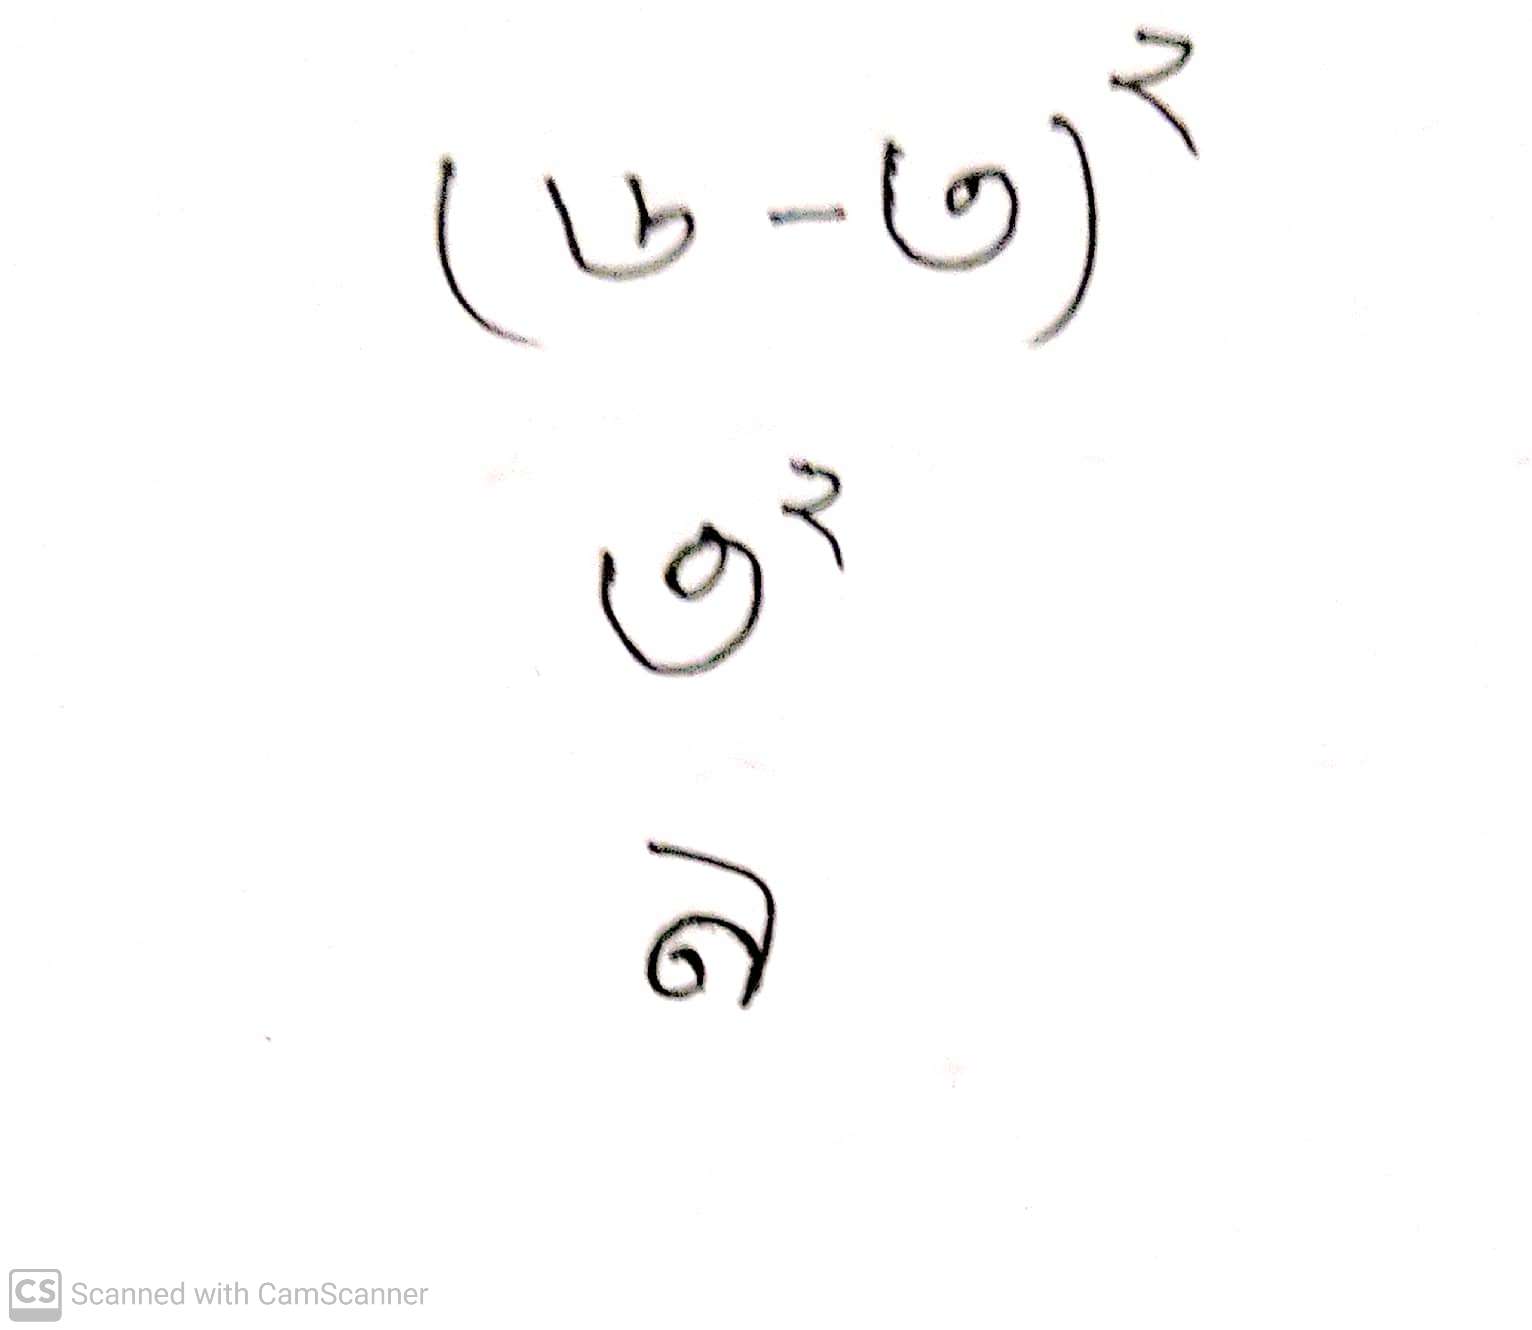 (৬-৩)²
৩²
৯
CS Scanned with CamScanner